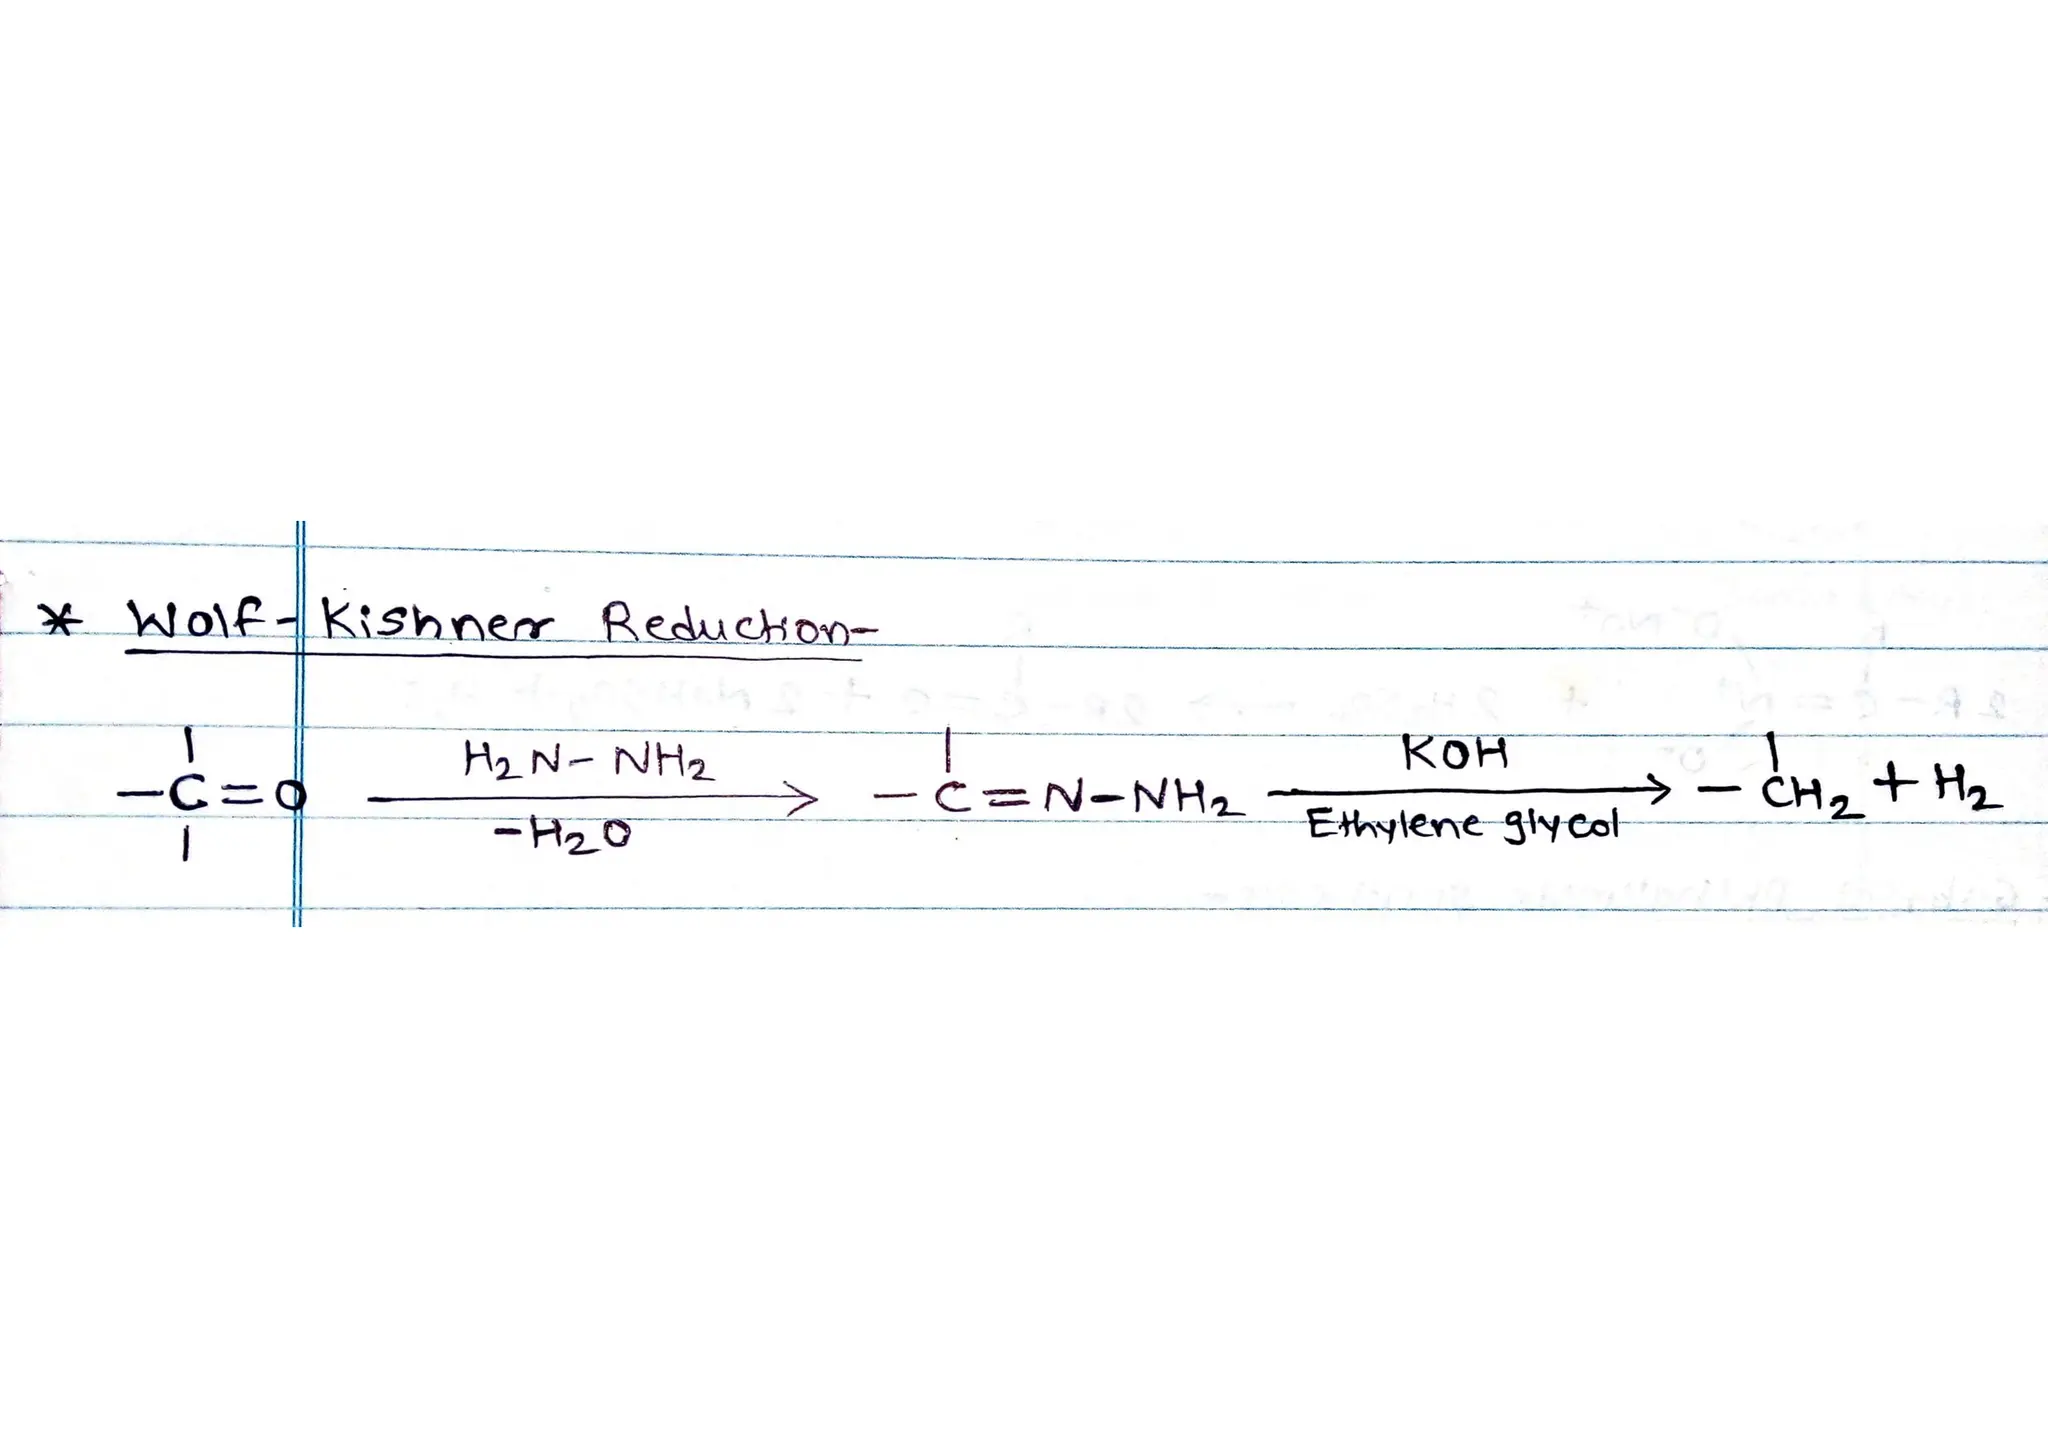 * Wolf-Kishner Reduction-
-C=O H2N-NH2 -H2O → -C=N-NH2 KOH Ethylene glycol → -CH2 + H2